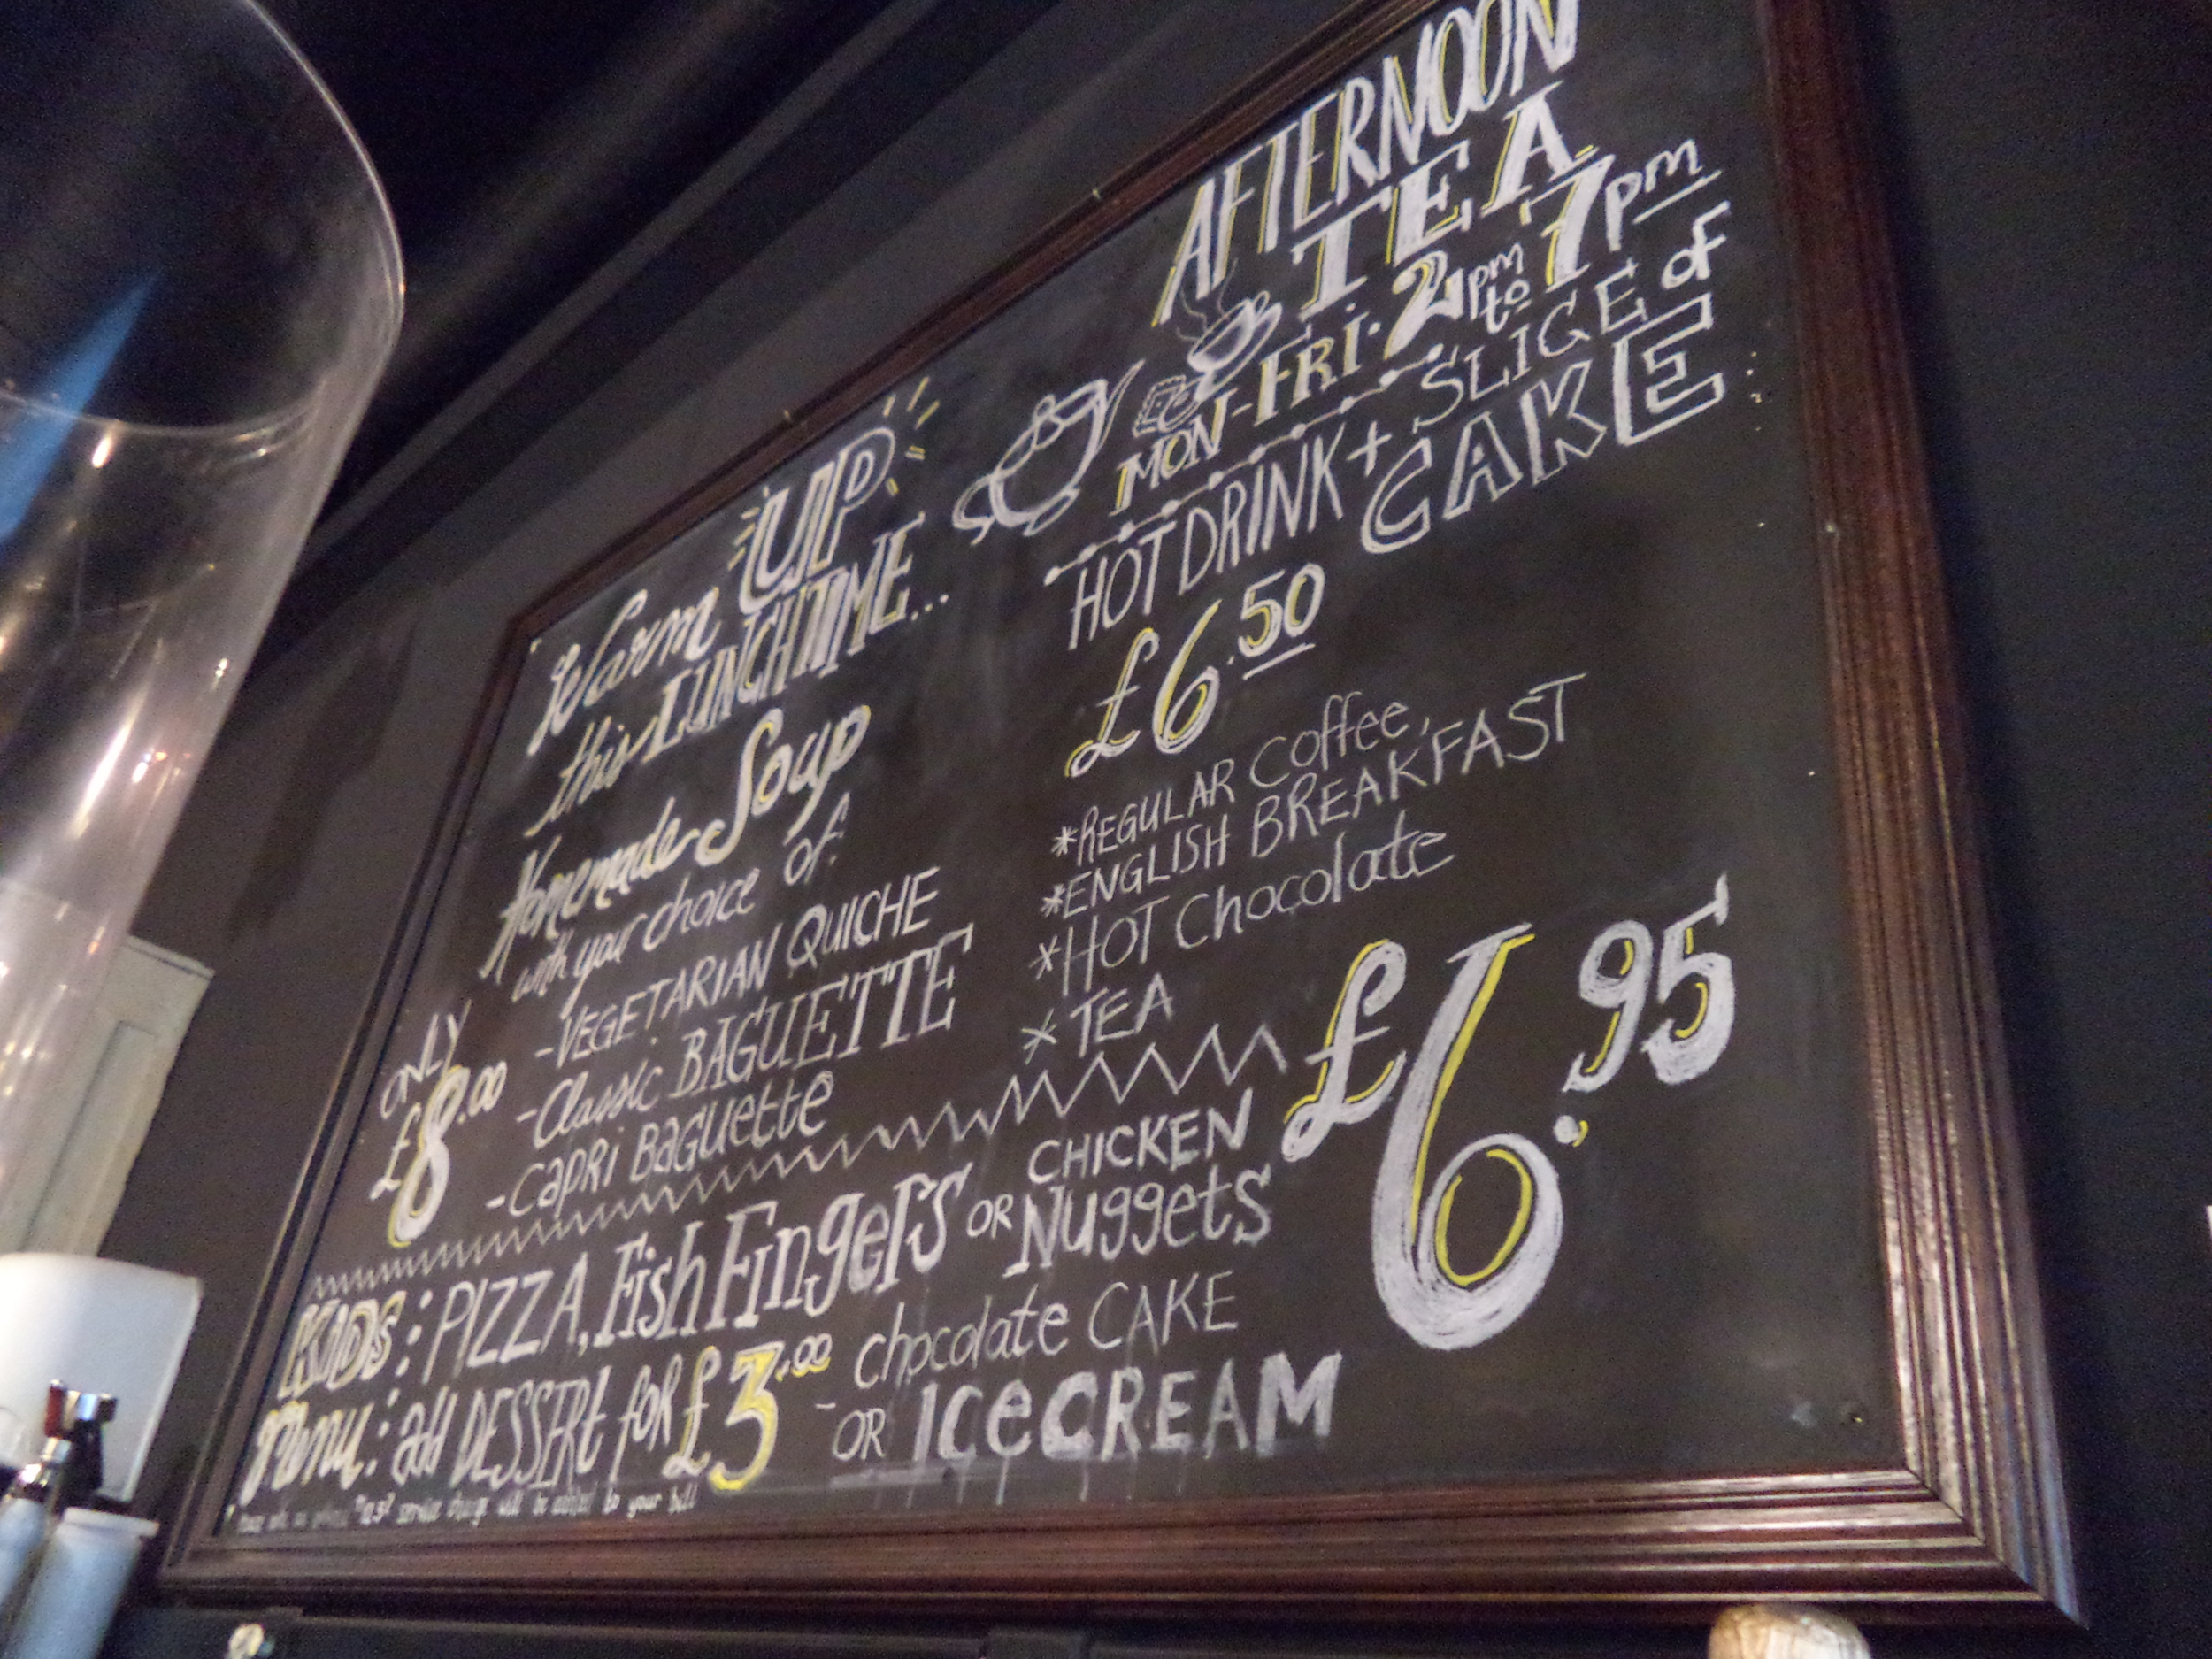 Warm UP
this LUNCHTIME...
Homemade Soup
with your choice of:
-VEGETARIAN QUICHE
-Classic BAGUETTE
-CAPRI BAGUETTE
ONLY
£8.00
AFTERNOON
TEA
MON-FRI. 2pm to 7pm
HOT DRINK + SLICE of
CAKE
£6.50
*REGULAR Coffee,
*ENGLISH BREAKFAST
*HOT Chocolate
*TEA
KIDS: PIZZA, Fish Fingers OR CHICKEN Nuggets
£6.95
Menu: add DESSERt for £3.00 - chocolate CAKE
OR ICeCREAM
service charge will be added to your bill